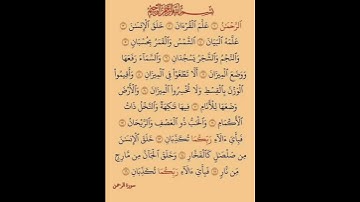 بسم الله الرحمن الرحيم
ٱلرَّحْمَٰنُ ۝ عَلَّمَ ٱلْقُرْءَانَ ۝ خَلَقَ ٱلْإِنسَٰنَ ۝
عَلَّمَهُ ٱلْبَيَانَ ۝ ٱلشَّمْسُ وَٱلْقَمَرُ بِحُسْبَانٍ ۝
وَٱلنَّجْمُ وَٱلشَّجَرُ يَسْجُدَانِ ۝ وَٱلسَّمَآءَ رَفَعَهَا
وَوَضَعَ ٱلْمِيزَانَ ۝ أَلَّا تَطْغَوْا۟ فِى ٱلْمِيزَانِ ۝ وَأَقِيمُوا۟
ٱلْوَزْنَ بِٱلْقِسْطِ وَلَا تُخْسِرُوا۟ ٱلْمِيزَانَ ۝ وَٱلْأَرْضَ
وَضَعَهَا لِلْأَنَامِ ۝ فِيهَا فَٰكِهَةٌ وَٱلنَّخْلُ ذَاتُ
ٱلْأَكْمَامِ ۝ وَٱلْحَبُّ ذُو ٱلْعَصْفِ وَٱلرَّيْحَانُ ۝
فَبِأَىِّ ءَالَآءِ رَبِّكُمَا تُكَذِّبَانِ ۝ خَلَقَ ٱلْإِنسَٰنَ
مِن صَلْصَٰلٍ كَٱلْفَخَّارِ ۝ وَخَلَقَ ٱلْجَآنَّ مِن مَّارِجٍ
مِّن نَّارٍ ۝ فَبِأَىِّ ءَالَآءِ رَبِّكُمَا تُكَذِّبَانِ ۝
سورة الرحمن